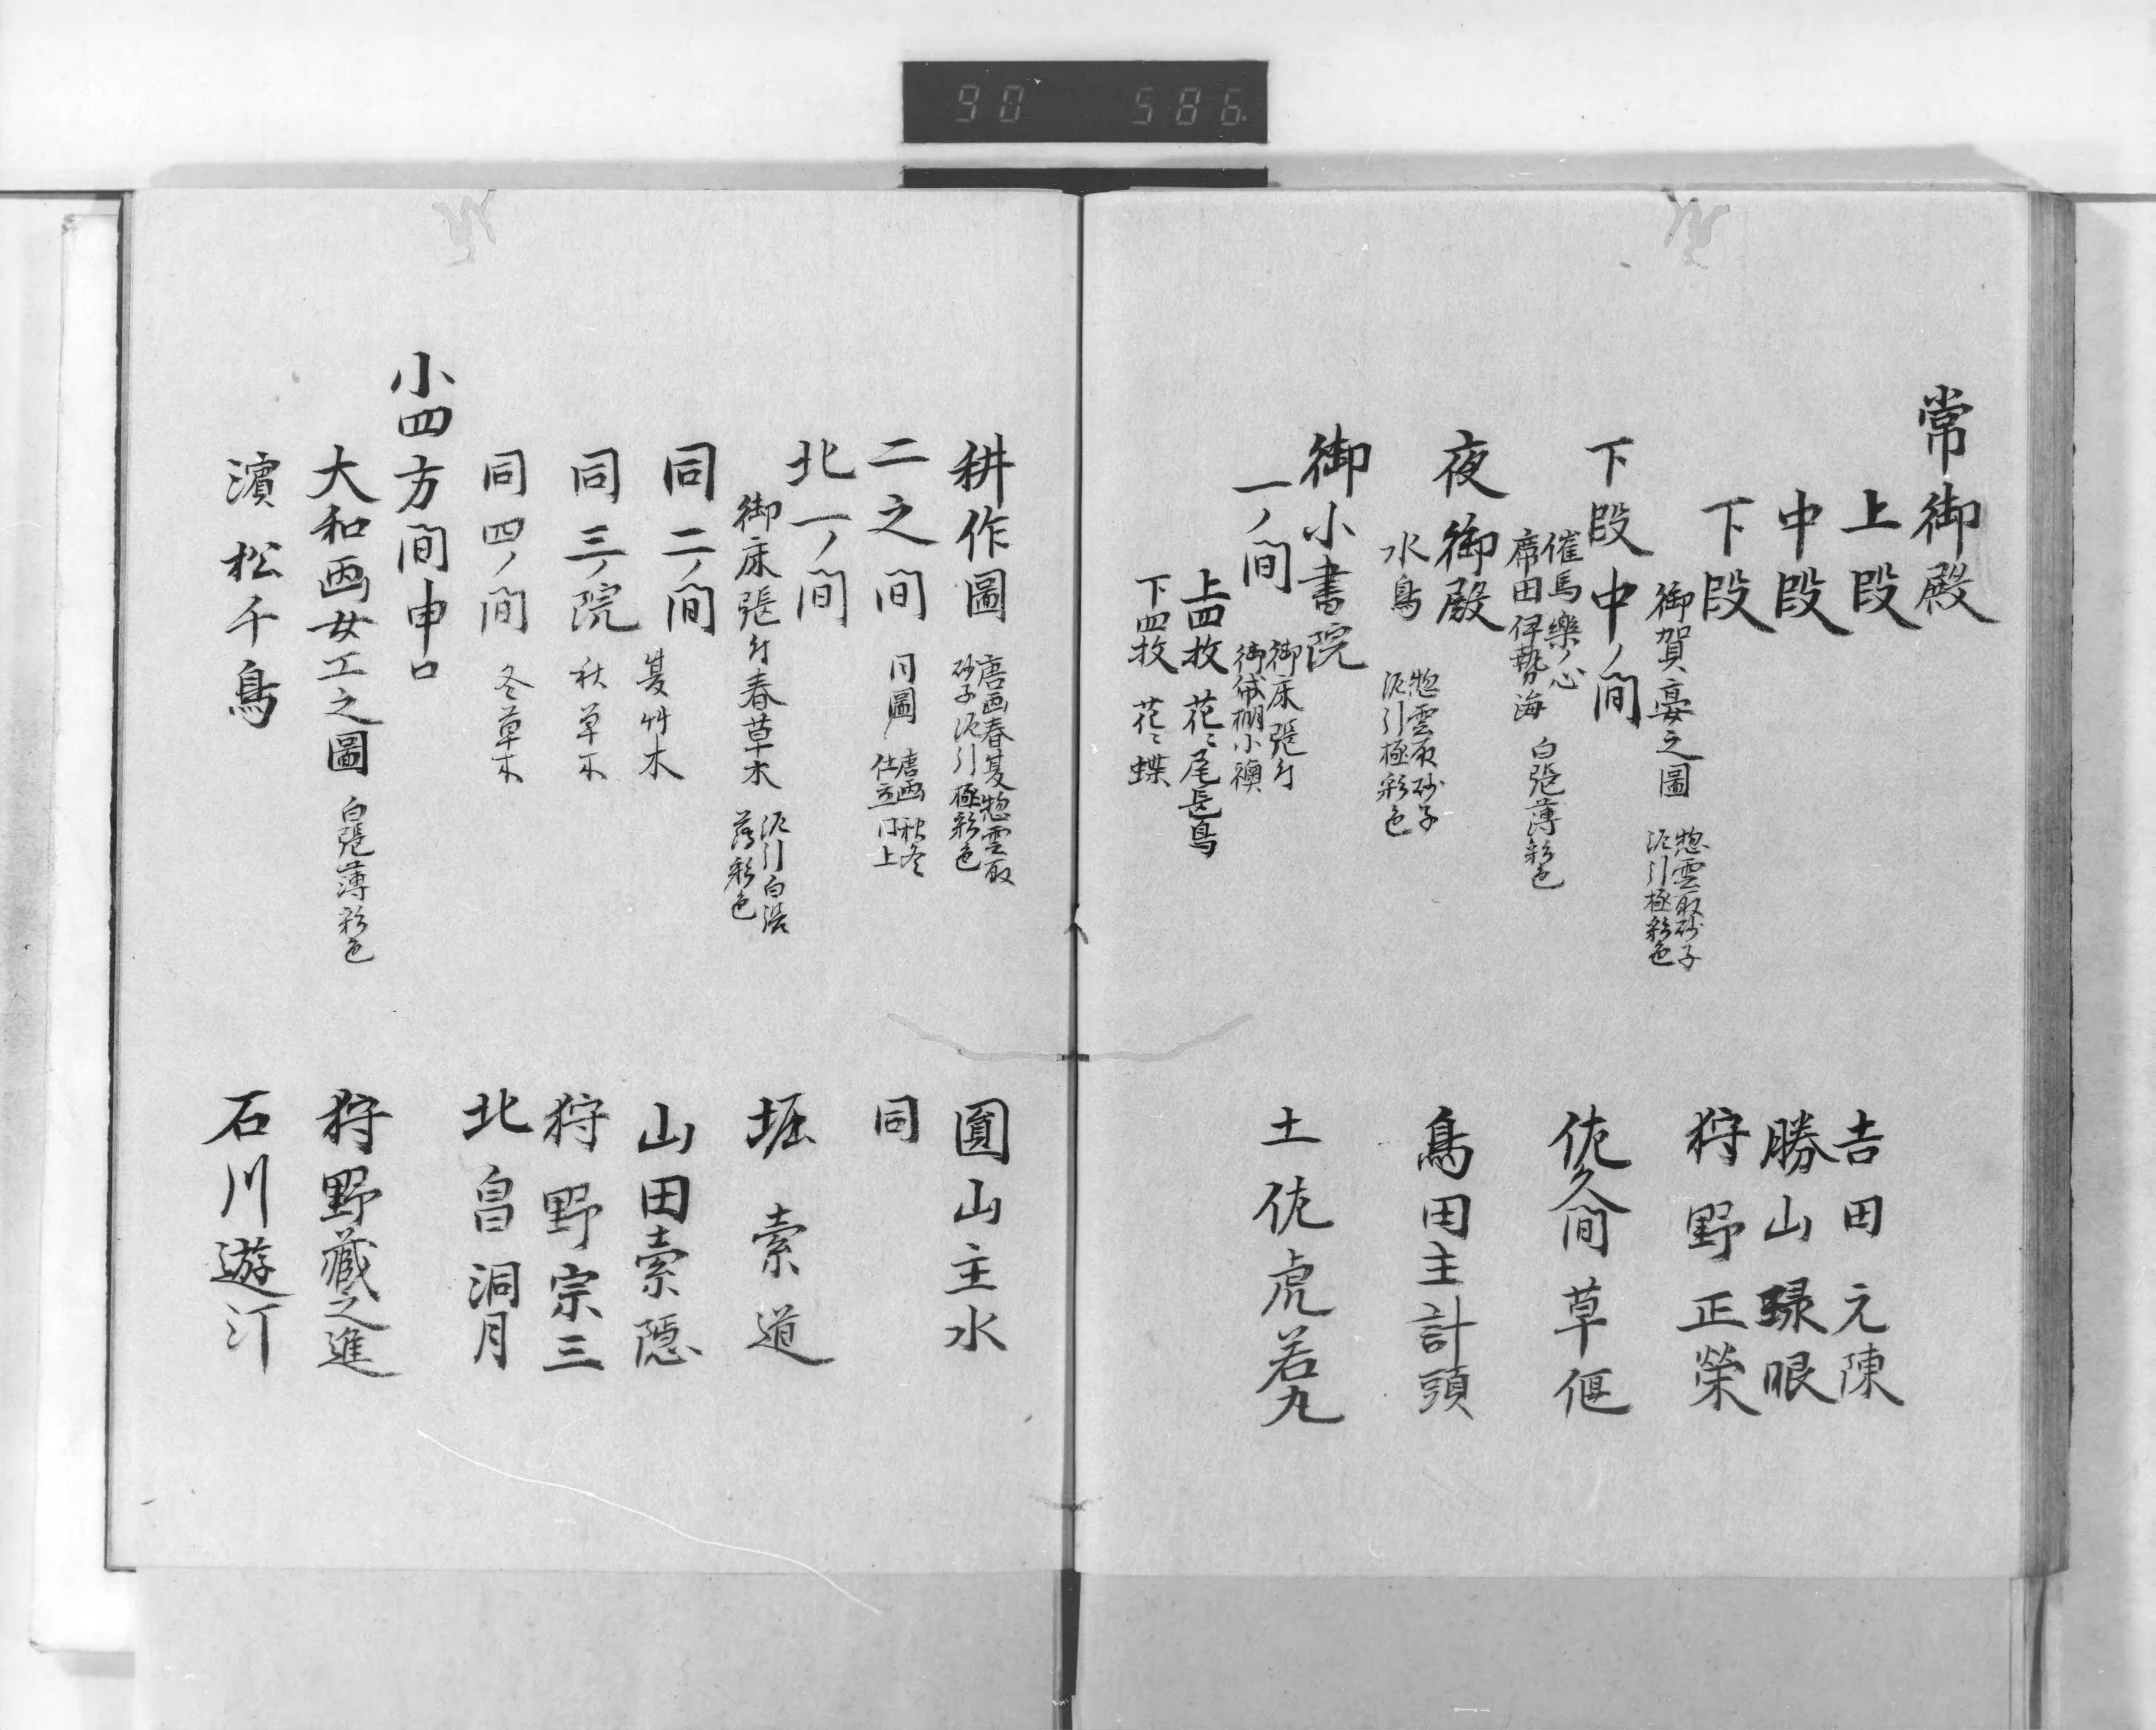 90 586
常御殿
上段 吉田元陳
中段 勝山琢眼
下段 狩野正榮
御賀宴之圖 惣雲取砂子
泥引極彩色
下段中ノ間 佐久間草偃
催馬樂ノ心
席田伊勢海 白張薄彩色
夜御殿 鳥田主計頭
水鳥 惣雲取砂子
泥引極彩色
御小書院
一ノ間 御床張付
御袋棚小襖 土佐虎若丸
上四枚 花ニ尾長鳥
下四枚 花ニ蝶
耕作圖 唐画春夏惣雲取
砂子泥引極彩色 圓山主水
二之間 同圖 唐画秋冬
仕立同上 同
北一ノ間
御床張付春草木 泥引白張
薄彩色 堀索道
同二ノ間 夏草木 山田索隠
同三ノ院 秋草木 狩野宗三
同四ノ間 冬草木 北昌洞月
小四方間申口
大和画女工之圖 白張薄彩色 狩野藏之進
濱松千鳥 石川遊汀